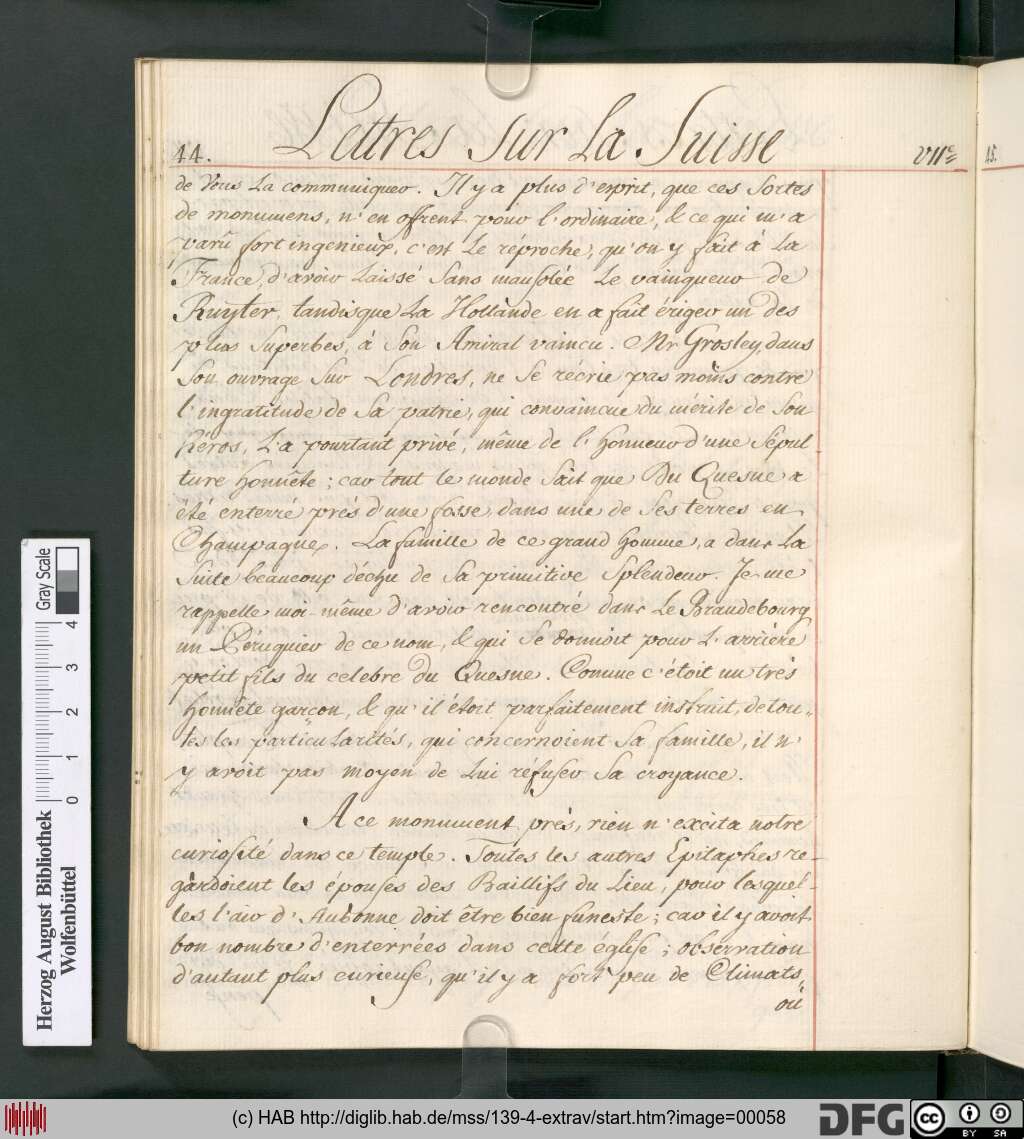 44. Lettres sur La Suisse VII.e
de Vous La communiquer. Il y a plus d'esprit, que ces Sortes
de monumens, n'en offrent pour l'ordinaire, & ce qui m'a
parû fort ingenieux, c'est Le réproche, qu'on y fait à La
France, d'avoir Laissé Sans mausolée Le vainqueur de
Ruyter, tandisque La Hollande en a fait ériger un des
plus Superbes, à Son Amiral vaincu. Mr Grosley, dans
Son ouvrage Sur Londres, ne Se récrie pas moins contre
l'ingratitude de Sa patrie, qui convaincue du mérite de Son
héros, L'a pourtant privé, même de l'honneur d'une Sépul
ture honnête; car tout le monde Sait que Du Quesne a
été enterré prés d'une fosse, dans une de Ses terres en
Champagne. La famille de ce grand homme, a dans La
Suite beaucoup déchu de Sa primitive Splendeur. Je me
rappelle moi-même d'avoir rencontré dans Le Brandebourg
un Péruquier de ce nom, & qui Se donnoit pour L'arriére
petit fils du celebre du Quesne. Comme c'étoit un trés
honnête garçon, & qu'il étoit parfaitement instruit, de tou-
tes les particularités, qui concernoient Sa famille, il n'
y avoit pas moyen de Lui réfuser Sa croyance.
A ce monument prés, rien n'excita notre
curiosité dans ce temple. Toutes les autres Epitaphes re-
gardoient les épouses des Baillifs du Lieu, pour lesquel-
les l'air d'Aubonne doit être bien funeste; car il y avoit
bon nombre d'enterrées dans cette église; observation
d'autant plus curieuse, qu'il y a fort peu de Climats,
où
45.
Herzog August Bibliothek
Wolfenbüttel
0 1 2 3 4
Gray Scale
(c) HAB http://diglib.hab.de/mss/139-4-extrav/start.htm?image=00058
DFG
cc BY SA